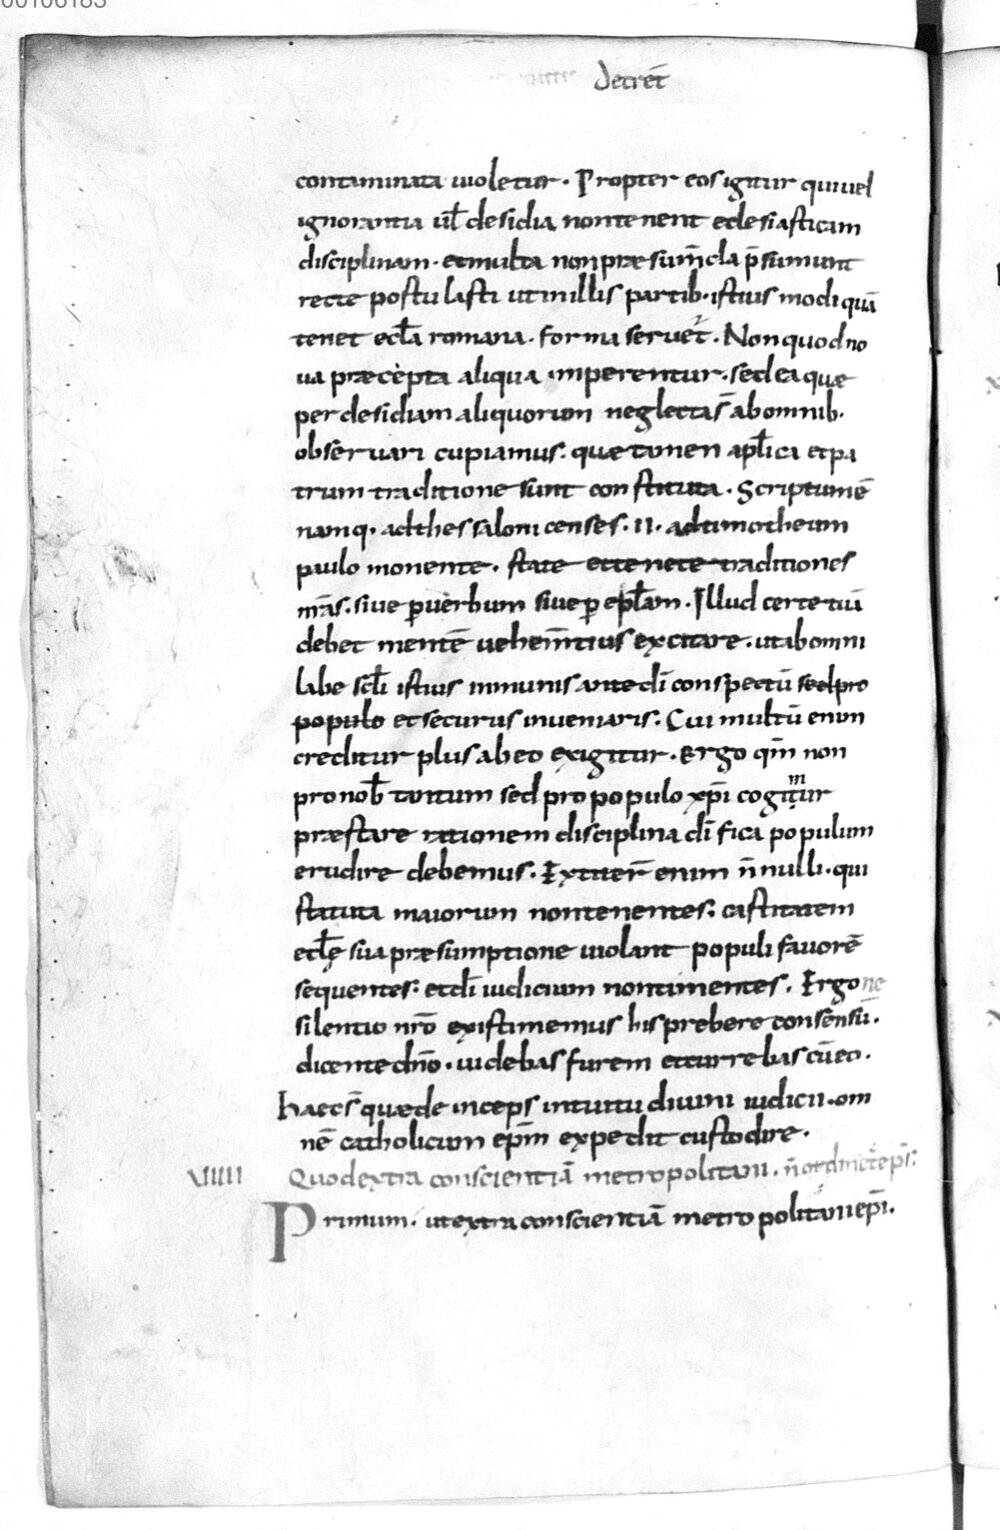 00106183
decret̄
contaminata uioletur. Propter eos igitur qui uel
ignorantia ul̄ desidia non tenent eclesiasticam
disciplinam. et multa non præsum̄da p̄sumunt
recte postulasti ut in illis partib. istius modi quā
tenet ecl̄a romana. forma seruet̄. Non quod no
ua præcepta aliqua imperentur. sed ea quæ
per desidiam aliquorum neglecta s̄ ab omnib.
obseruari cupiamus. quæ tamen apl̄ica et pa
trum traditione sunt constituta. Scriptum ē
namq. ad thessalonicenses. II. ad timotheum
paulo monente. state et tenete traditiones
nr̄as. siue ꝑ uerbum siue ꝑ epl̄am. Illud certe tuā
debet mentē uehem̄tius excitare. ut ab omni
labe scl̄i istius inmunis ante dī conspectū sed pro
populo et securus inueniaris. Cui multū enim
creditur plus ab eo exigitur. Ergo qm̄ non
pro nob̄ tantum sed pro populo xp̄i cogimur
præstare rationem disciplina dīfica populum
erudire debemus. Extiter̄ enim n̄nulli. qui
statuta maiorum non tenentes. castitatem
ecl̄ę sua præsumptione uiolant populi fauorē
sequentes. et dī iudicium non timentes. Ergo ne
silentio nr̄o existimemus his prebere consensū.
dicente dn̄o. uidebas furem et currebas cū eo.
haec s̄ quæ deinceps intuitu diuini iudicii. om
nē catholicum ep̄m expedit custodire.
VIIII Quod extra conscientiā metropolitani. n̄ ordinet̄ ep̄s.
Primum. ut extra conscientiā metropolitani ep̄i.